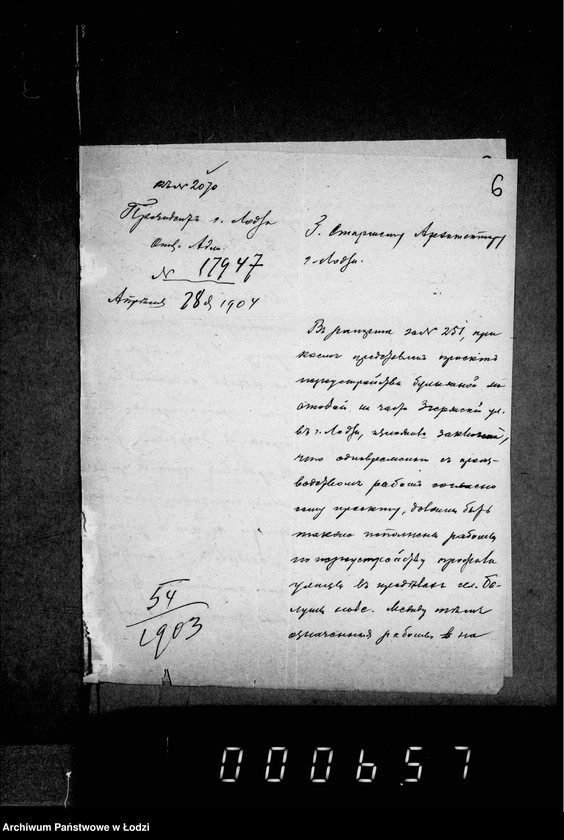 6
къ № 2070
Президентъ г. Лодзи
Отд. Адм.
№ 17947
Апрѣля 28 д. 1904
Г. Старшему Архитектору
г. Лодзи.
Въ рапортѣ за № 251, при
коемъ представленъ проектъ
переустройства булыжной мо
стовой на части Згержской ул.
въ г. Лодзи, изложено заключеніе,
что одновременно съ произ-
водствомъ работъ согласно
сему проекту, должны быть
также исполнены работы
по переустройству профиля
улицы въ предѣлахъ сел. Ба-
луты нове. Между тѣмъ
означенныя работы в на
54
1903
000657
Archiwum Państwowe w Łodzi